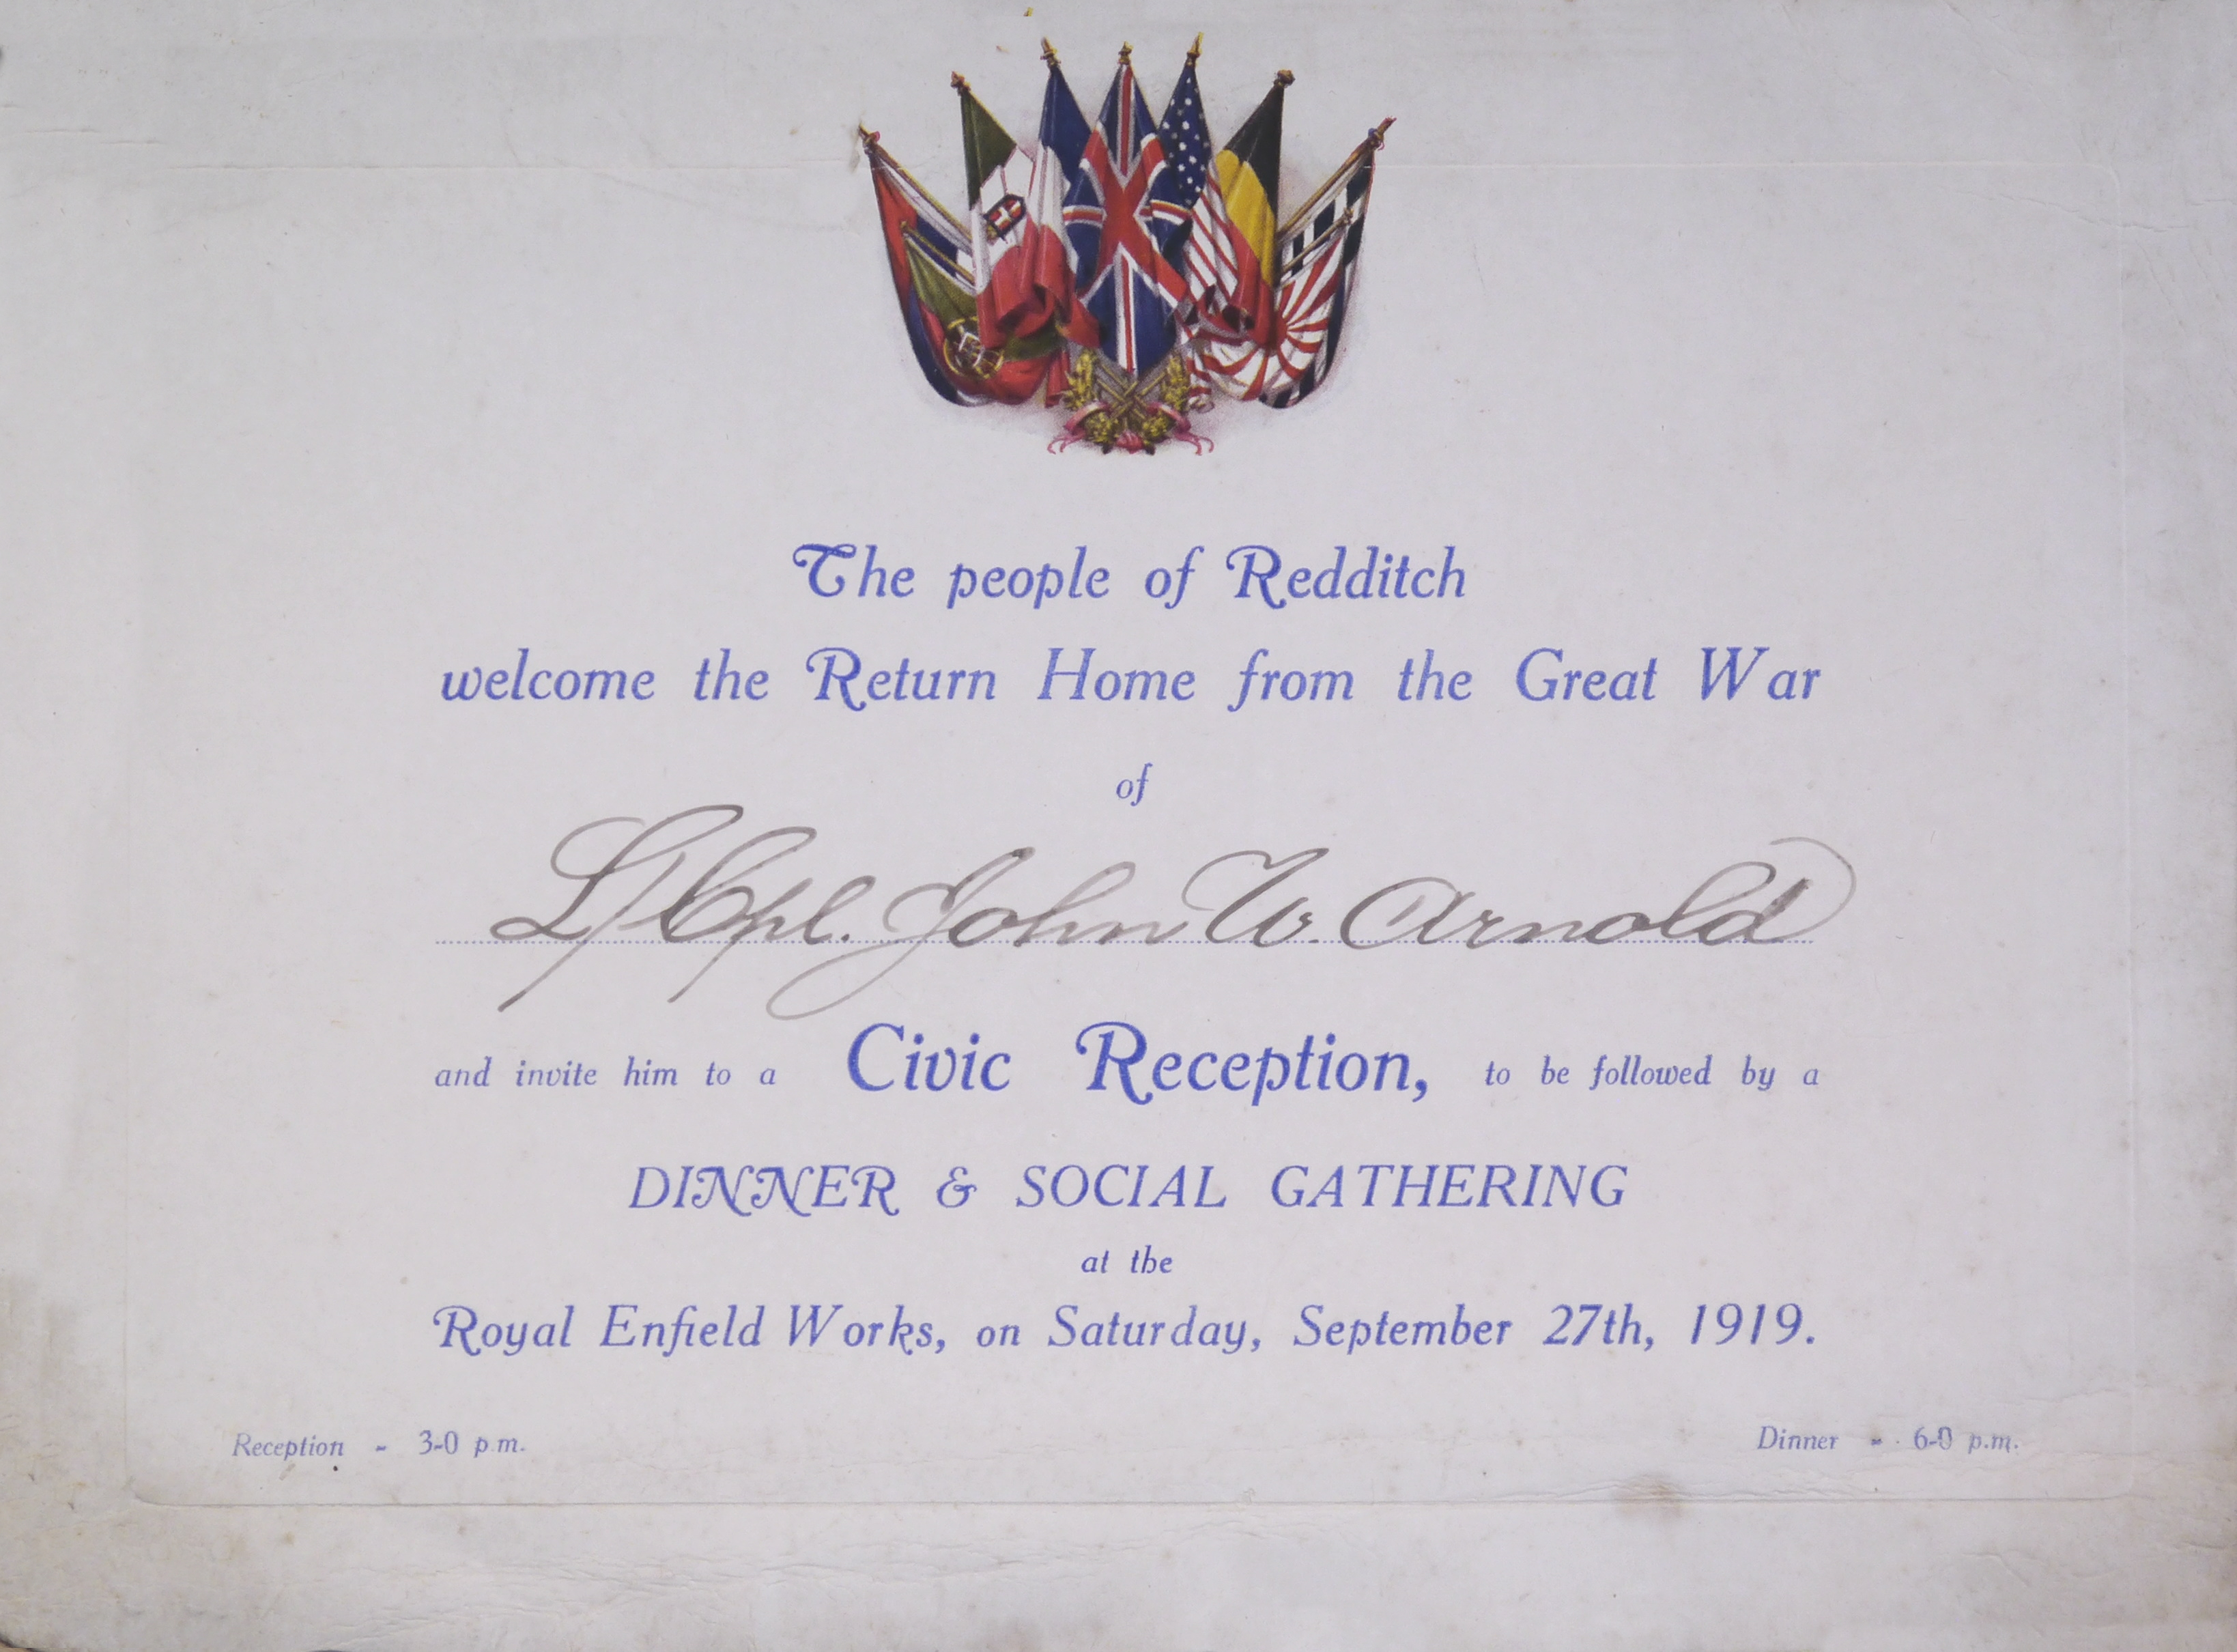 The people of Redditch
welcome the Return Home from the Great War
of
L/Cpl. John W. Arnold
and invite him to a Civic Reception, to be followed by a
DINNER & SOCIAL GATHERING
at the
Royal Enfield Works, on Saturday, September 27th, 1919.
Reception - 3-0 p.m. Dinner - 6-0 p.m.